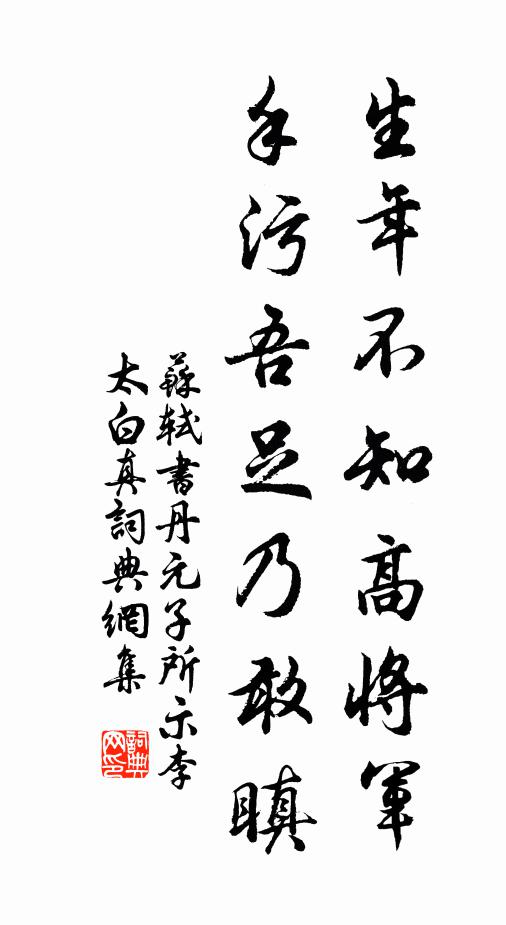 生年不知高將軍
手污吾足乃敢瞋
蘇軾書丹元子所示李
太白真詞典網集
詞典网印